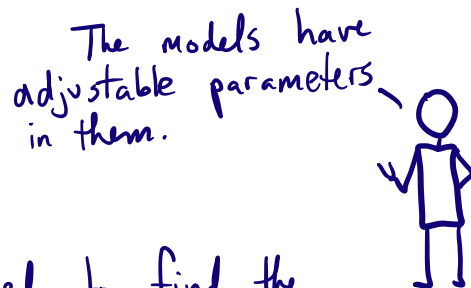 The models have
adjustable parameters
in them.
to find the